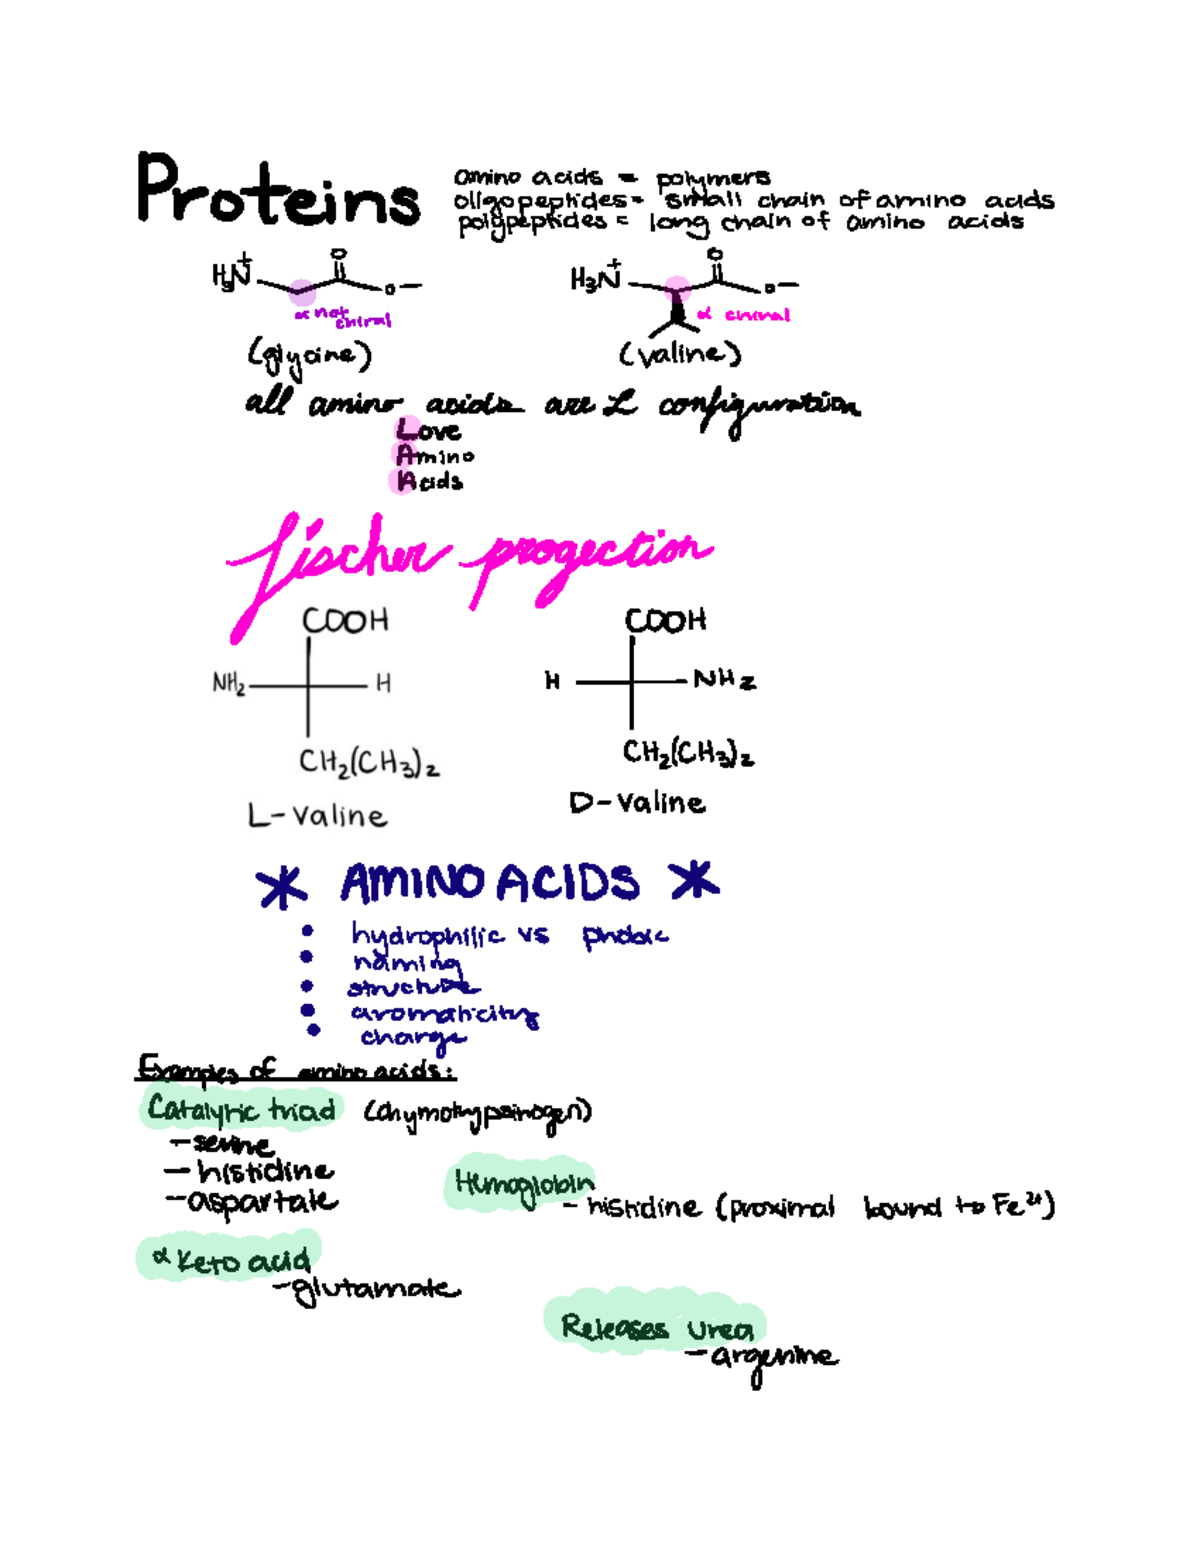 Proteins
amino acids = polymers
oligopeptides = small chain of amino acids
polypeptides = long chain of amino acids
H₃N⁺ O O⁻
α not chiral
(glycine)
H₃N⁺ O O⁻
α chiral
(valine)
all amino acids are L configuration
Love
Amino
Acids
fischer progection
COOH
NH₂ H
CH₂(CH₃)₂
L-valine
COOH
H NH₂
CH₂(CH₃)₂
D-valine
* AMINO ACIDS *
• hydrophilic vs phobic
• naming
• structure
• aromaticity
• charge
Examples of amino acids:
Catalytic triad (chymotrypsinogen)
- serine
- histidine
- aspartate
Hemoglobin
- histidine (proximal bound to Fe²⁺)
α Keto acid
- glutamate
Releases Urea
- argenine